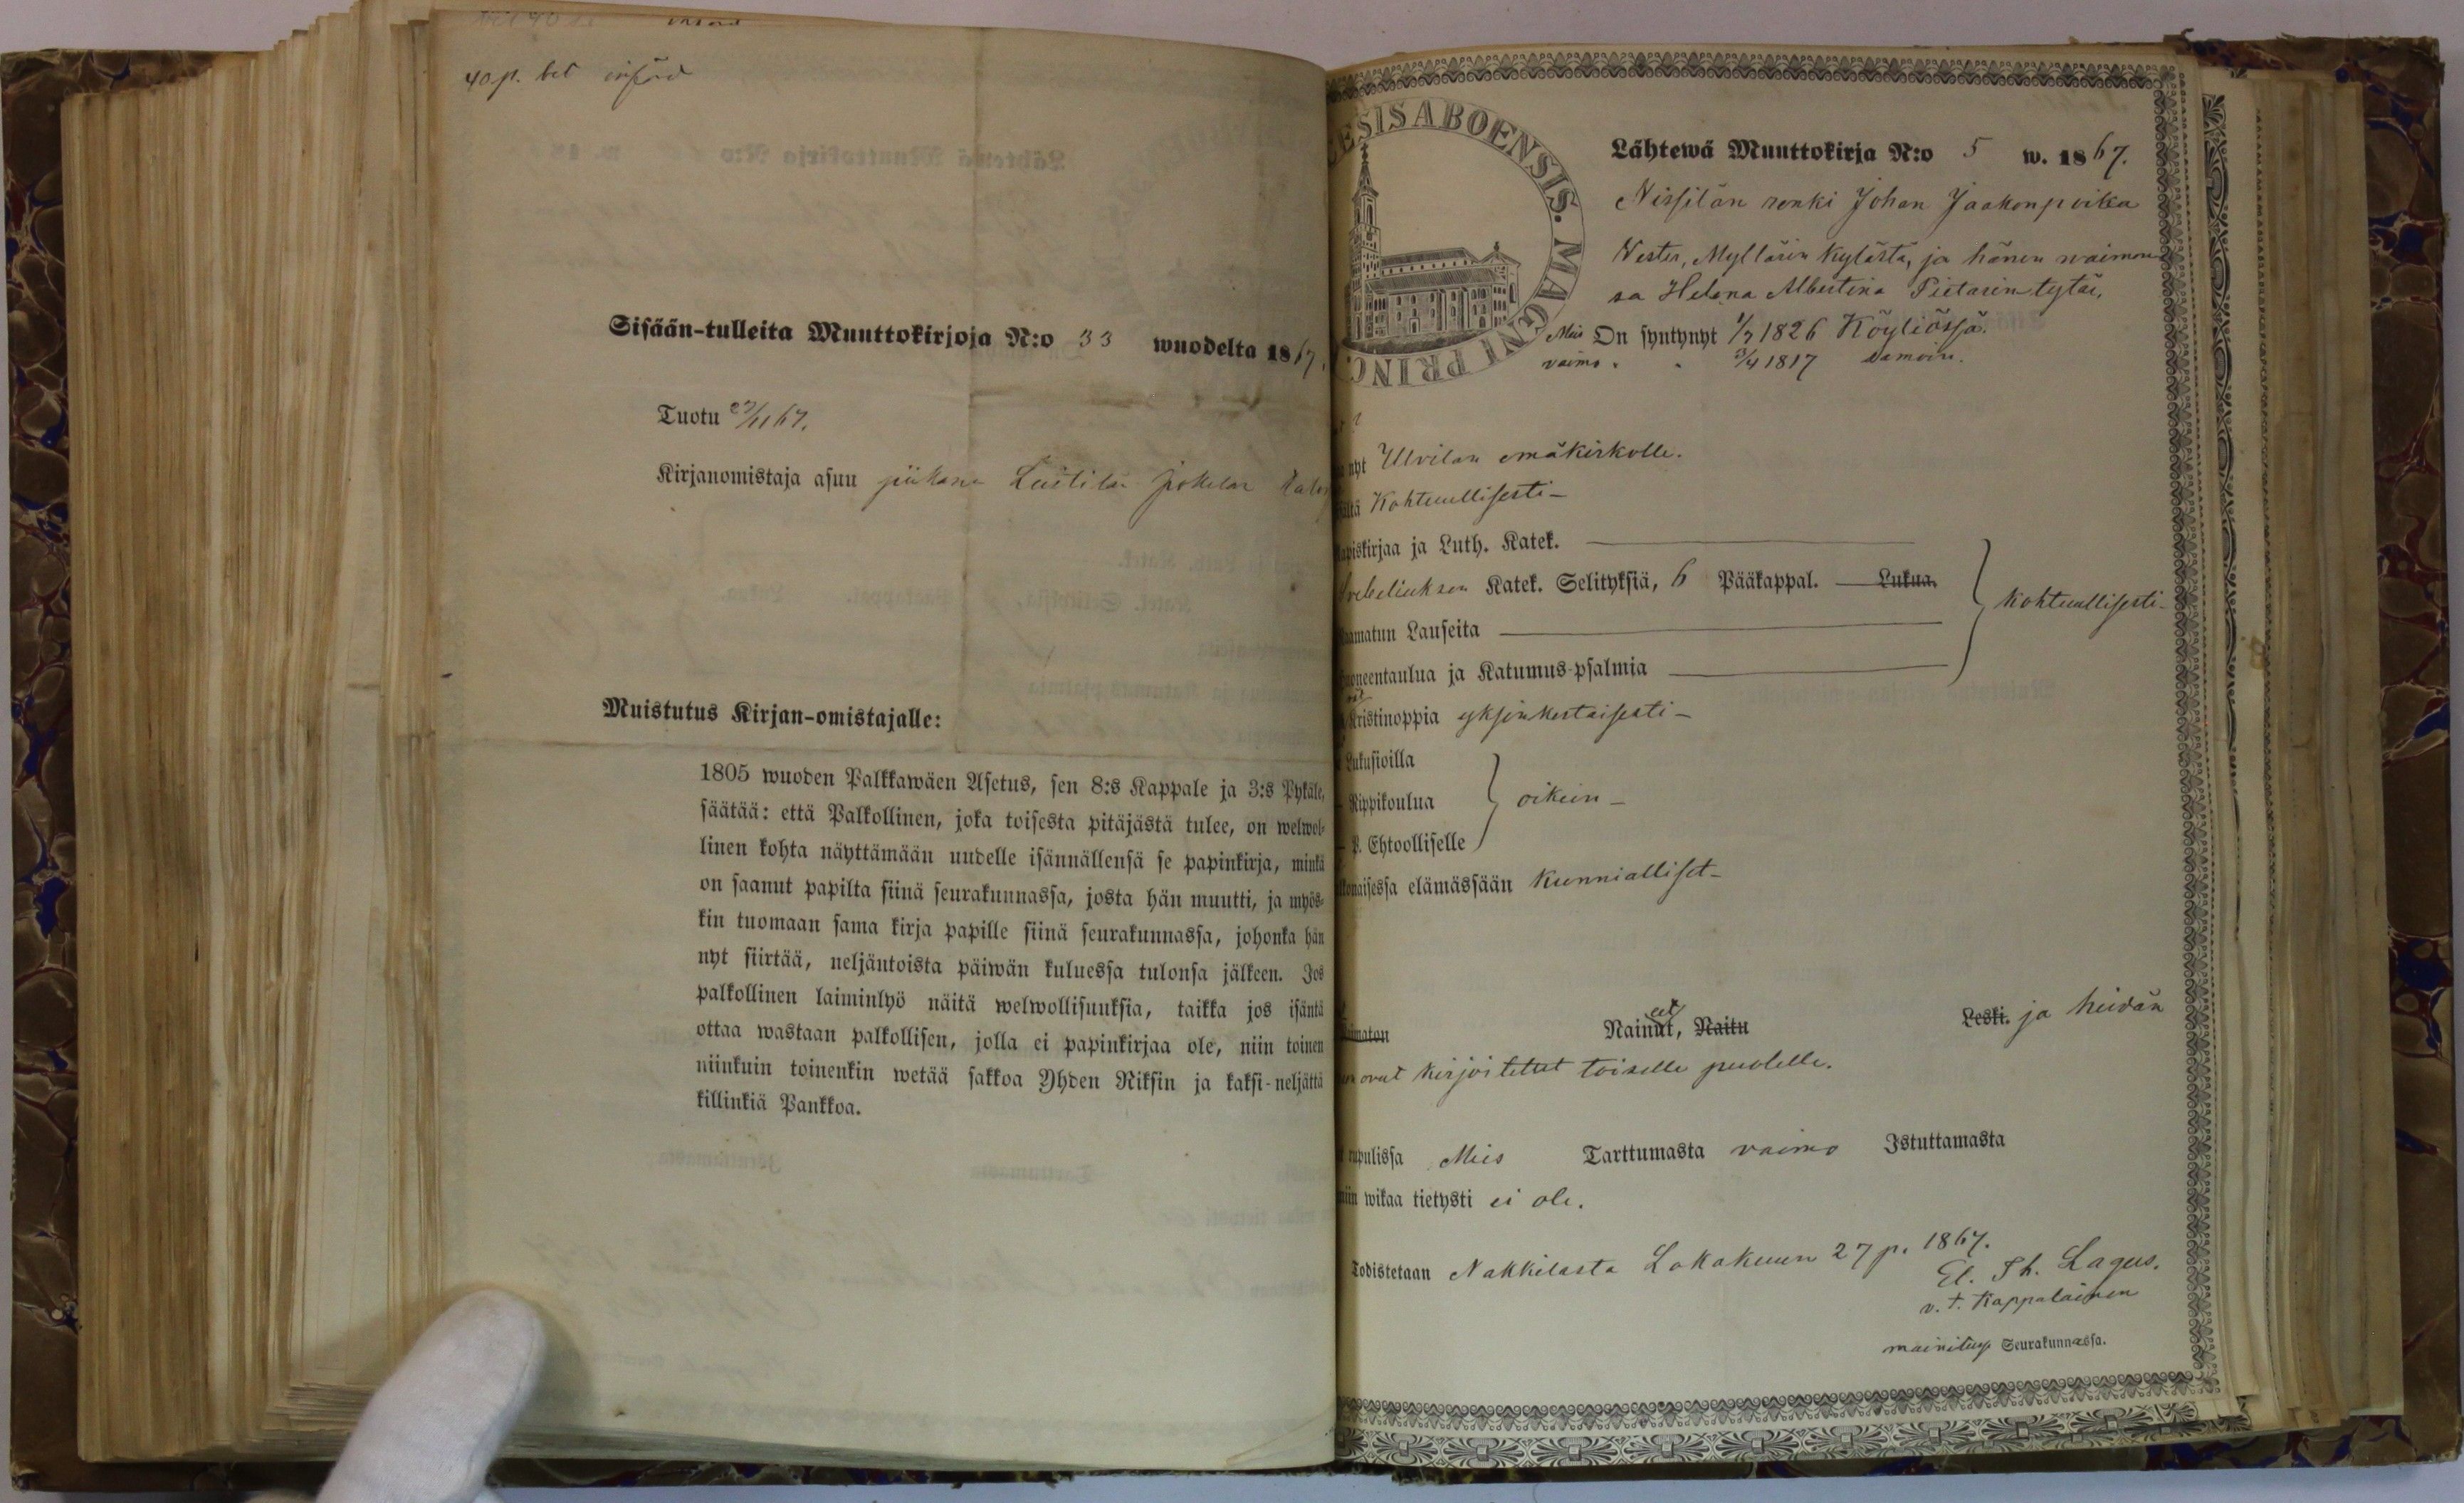 40 p. bet införd
Sisään-tulleita Muuttokirjoja N:o 33 wuodelta 1867.
Tuotu 27/11 67.
Kirjanomistaja asuu piikana
Muistutus Kirjan-omistajalle:
1805 wuoden Palkkawäen Asetus, sen 8:s Kappale ja 3:s Pykäle,
säätää: että Palkollinen, joka toisesta pitäjästä tulee, on welwol-
linen kohta näyttämään uudelle isännällensä se papinkirja, minkä
on saanut papilta siinä seurakunnassa, josta hän muutti, ja myös-
kin tuomaan sama kirja papille siinä seurakunnassa, johonka hän
nyt siirtää, neljäntoista päiwän kuluessa tulonsa jälkeen. Jos
palkollinen laiminlyö näitä welwollisuuksia, taikka jos isäntä
ottaa wastaan palkollisen, jolla ei papinkirjaa ole, niin toinen
niinkuin toinenkin wetää sakkoa Yhden Riksin ja kaksi-neljättä
killinkiä Pankkoa.
ESISABOENSIS. MAGNI PRINC
Lähtewä Muuttokirja N:o 5 w. 1867.
Nissilän renki Johan Jaakonpoika
Vester, Mylläsin kylästä, ja hänen waimon
sa Helena Albertina Pietarintytär,
Mies On syntynyt 1/7 1826 Köyliössä.
vaimo " " 3/4 1817 Samoin.
nyt Ulvilan emäkirkolle.
Kohtuullisesti -
piskirjaa ja Luth. Katek.
Svebeliuksen Katek. Selityksiä, 6 Pääkappal. Lukua.
kohtuullisesti -
amatun Lauseita
oneentaulua ja Katumus-psalmia
ristinoppia yksinkertaisesti -
Lukusioilla
Rippikoulua oikein -
P. Ehtoolliselle
naisessa elämässään kunnialliset -
imaton Nainut, eet Naitu Leski. ja heidän
ovat kirjoitetut toiselle puolelle.
rupulissa Mies Tarttumasta vaimo Istuttamasta
wikaa tietysti ei ole.
Todistetaan Nakkilasta Lokakuun 27 p. 1867.
El. Th. Lagus.
v. t. Kappalainen
mainitussa Seurakunnassa.